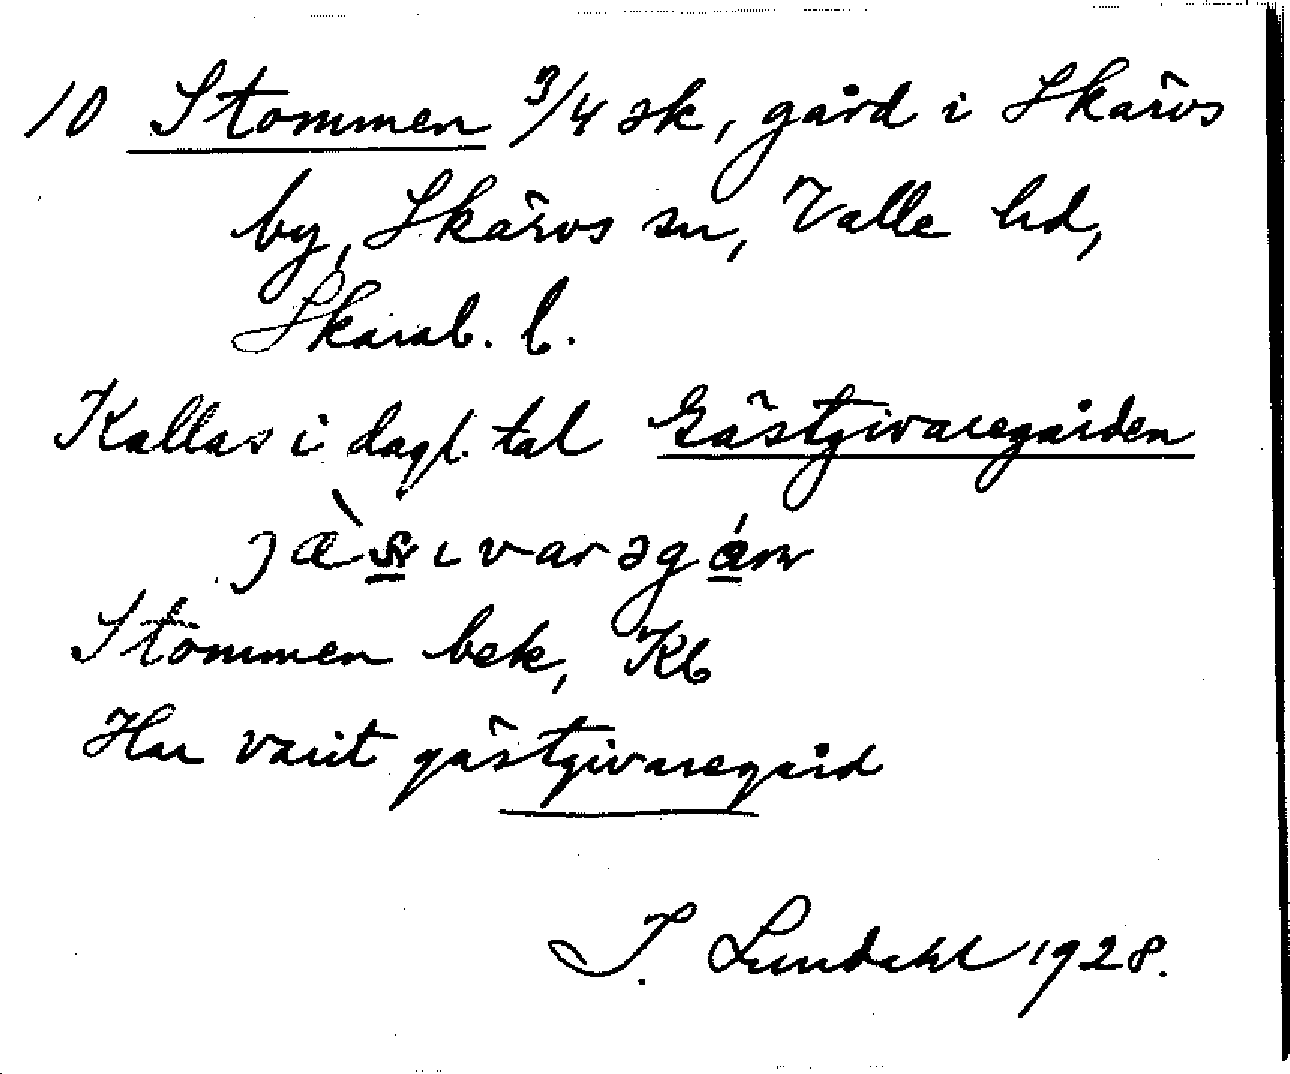 10 Stommen 3/4 sk, gård i Skärvs
by, Skärvs sn, Valle hd,
Skarab. l.
Kallas i dagl. tal Gästgivaregården
Stommen bek, Kb
Har varit gästgivaregård
I. Lundahl 1928.